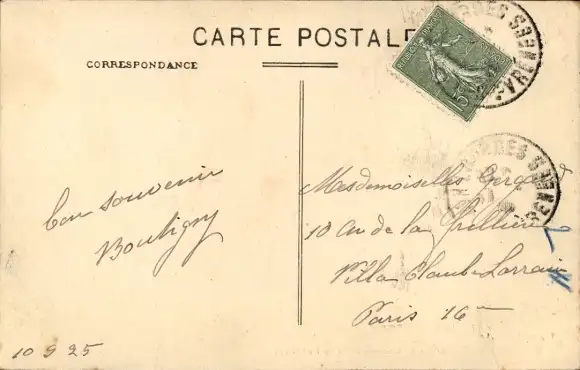 CARTE POSTALE
CORRESPONDANCE
bon souvenir
Boutigny
Mesdemoiselles
10 Av de la Frillière
Villa Claude Lorrain
Paris 16
10 9 25